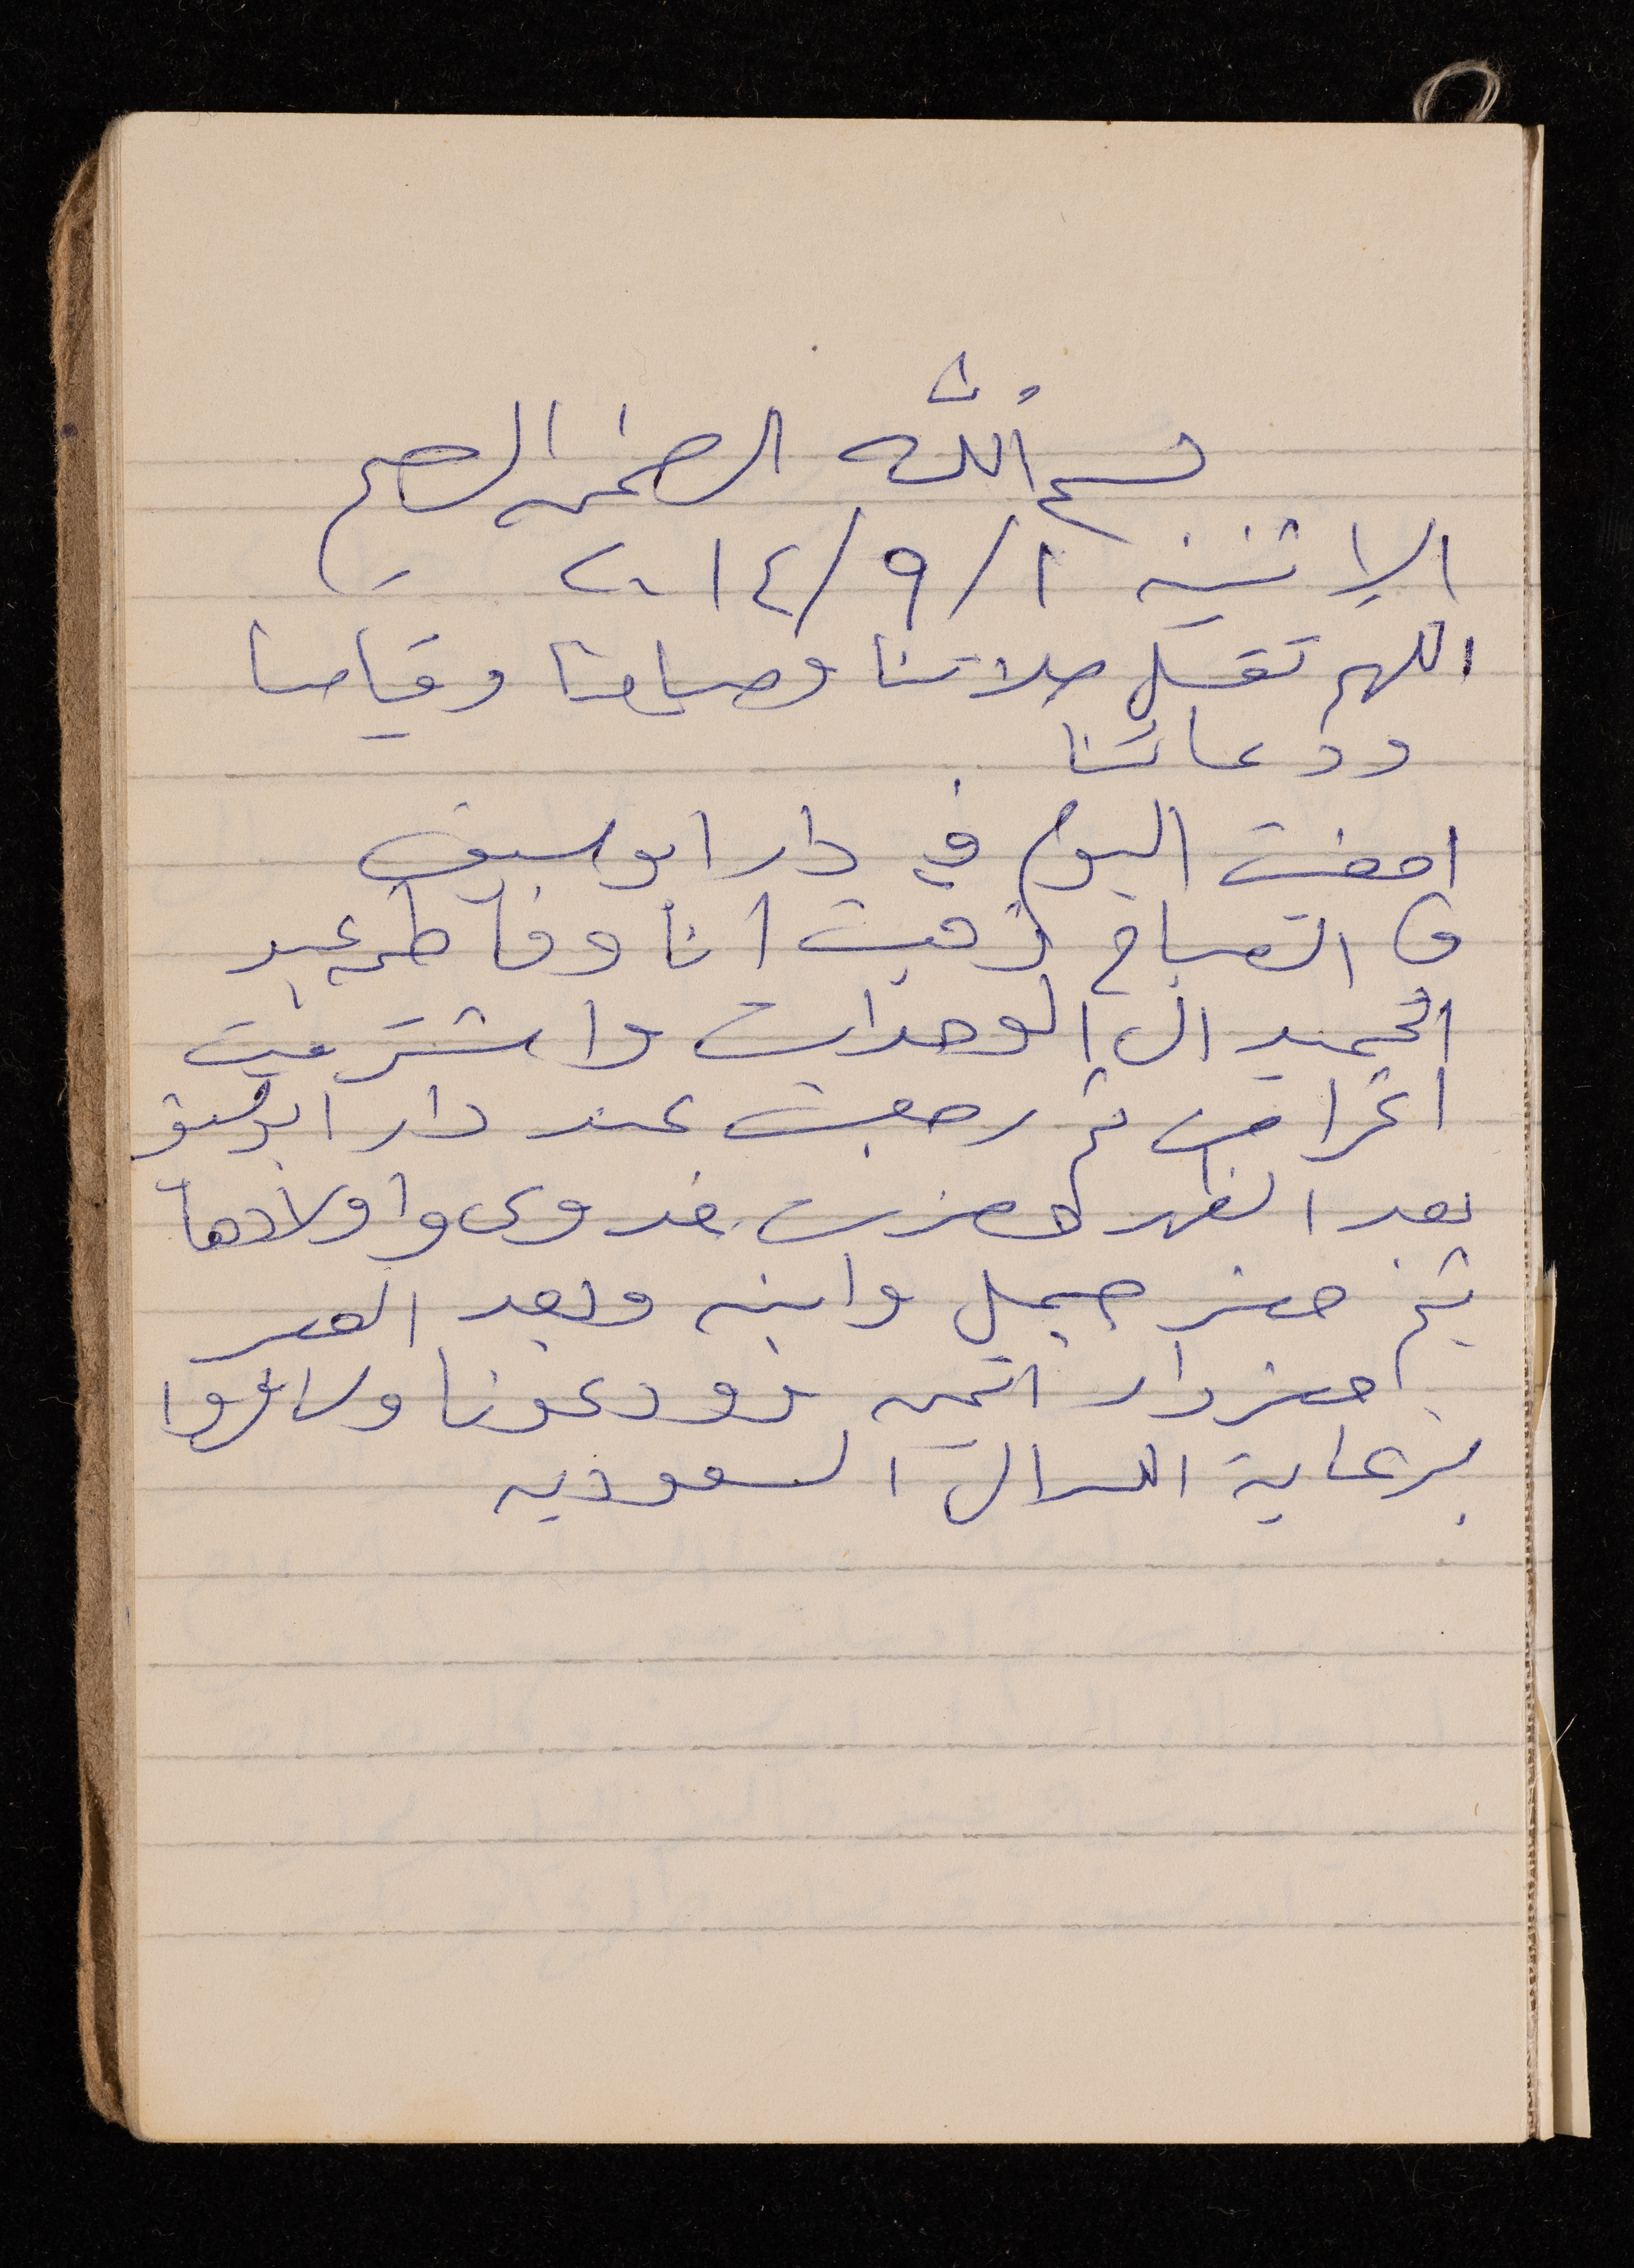 بسم الله الرحمن الرحيم
الإثنين ١/٩/٢٠١٤
اللهم تقبل صلاتنا وصيامنا وقيامنا
ودعائنا
امضيت اليوم في دار ابو سيف
في الصباح ذهبت انا وفاطمه عبد
الحميد الى الوحدات واشتريت
اغراض ثم رجعت عند دار ابو سيف
بعد الظهر حضرت فدوى واولادها
ثم حضر جميل وابنه وبعد العصر
احضر دار ايمن وودعونا وسافروا
برعاية الله الى السعوديه